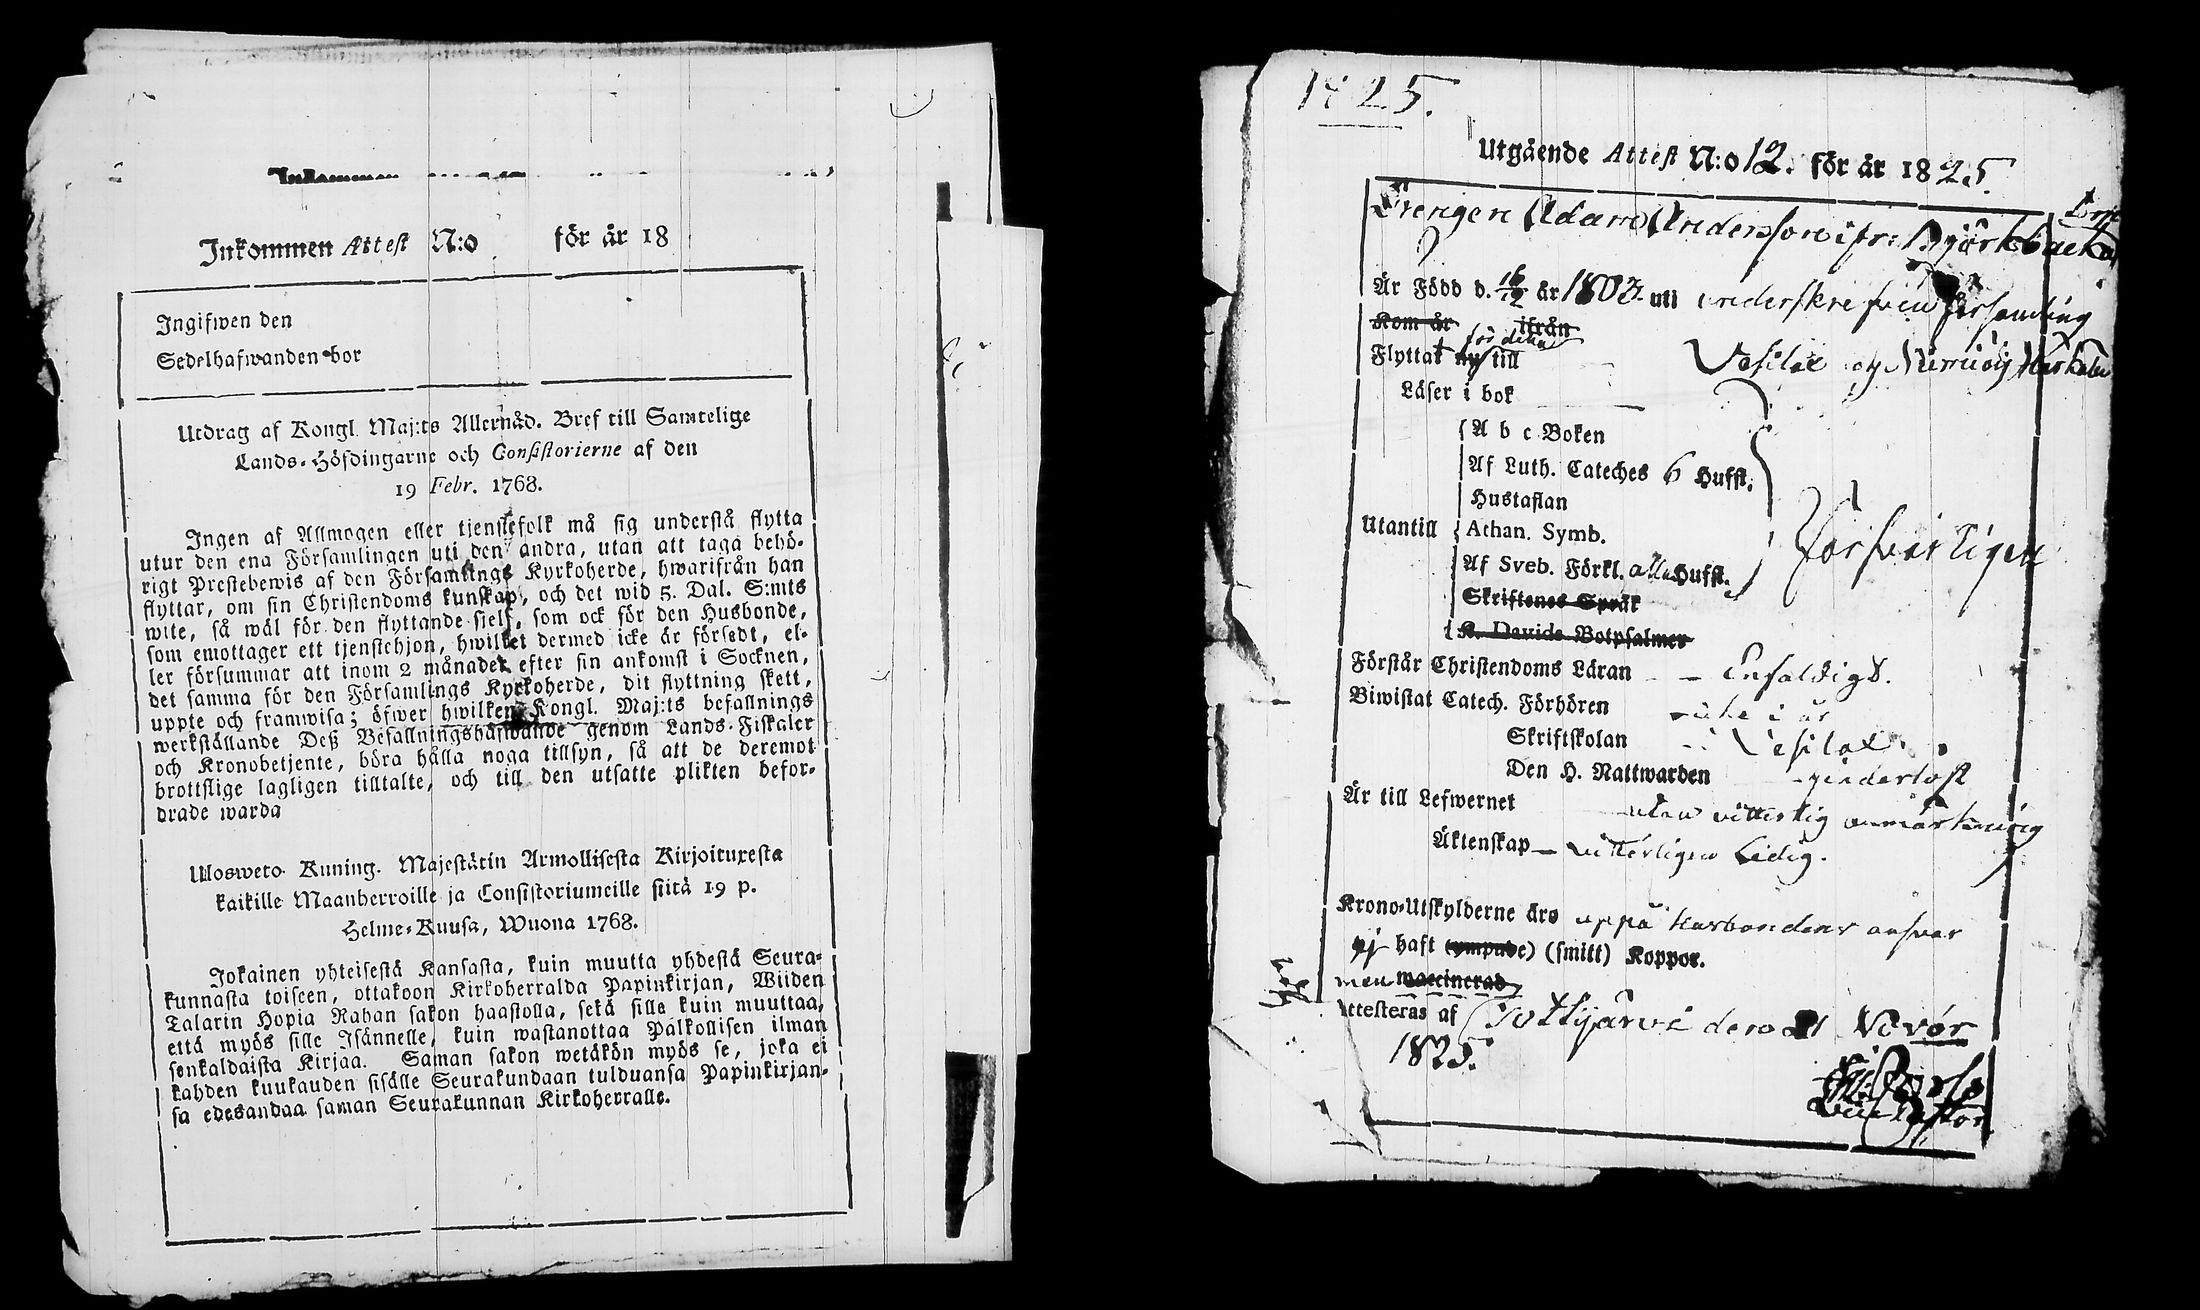 Inkommen
Inkommen Attest N:o för år 18
Ingifwen den
Sedelhafwanden bor
Utdrag af Kongl. Maj:ts Allernåd. Bref till Samtelige
Lands-Höfdingarne och Consistorierne af den
19 Febr. 1768.
Ingen af Allmogen eller tjenstefolk må sig understå flytta
utur den ena Församlingen uti den andra, utan att taga behö-
rigt Prestebewis af den Församlings Kyrkoherde, hwarifrån han
flyttar, om sin Christendoms kunskap, och det wid 5. Dal. S:mts
wite, så wäl för den flyttande sielf, som ock för den Husbonde,
som emottager ett tjenstehjon, hwilket dermed icke är försedt, el-
ler försummar att inom 2 månader efter sin ankomst i Socknen,
det samma för den Församlings Kyrkoherde, dit flyttning skett,
uppte och framwisa; öfwer hwilken Kongl. Maj:ts befallnings
werkställande Deß Befallningshafwande genom Lands-Fiskaler
och Kronobetjente, böra hålla noga tillsyn, så att de deremot
brottslige lagligen tilltalte, och till den utsatte plikten befor-
drade warda
Ulosweto Kuning. Majestätin Armollisesta Kirjoituxesta
kaikille Maanherroille ja Consistoriumeille siitä 19 p.
Helme-Kuusa, Wuona 1768.
Jokainen yhteisestä Kansasta, kuin muutta yhdestä Seura-
kunnasta toiseen, ottakoon Kirkoherralda Papinkirjan, Wiiden
Talarin Hopia Rahan sakon haastolla, sekä sille kuin muuttaa,
että myös sille Isännelle, kuin wastanottaa Palkollisen ilman
senkaldaista Kirjaa. Saman sakon wetäkön myös se, joka ei
kahden kuukauden sisälle Seurakundaan tulduansa Papinkirjan-
sa edesandaa saman Seurakunnan Kirkoherralle.
1825.
Utgående Attest N:o 12. för år 1825.
Drengen Adam Andersson ifr: Björkbacka
Är Född d. 16/12 år 1803. uti underskrefwen församling
Kom år ifrån
Flyttat nu till Vesilax och Nurmi
Läser i bok
A b c Boken
Af Luth. Cateches 6 Hufst.
Hustaflan
Utantill Athan. Symb. Försvarligen
Af Sveb. Förkl. alla Hufst.
Skriftenes Språk
K. Davids Botpsalmer
Förstår Christendoms Läran Enfaldigt.
Biwistat Catech. Förhören icke i år
Skriftskolan i Vesilax
Den H. Nattwarden
Är till Lefwernet utan vitterlig anmärkning
Äktenskap vitterligen Ledig.
Krono-Utskylderne äro uppå Husbondens ansvar
ej haft (ympade) (smitt) Koppor.
men vaccinerad
Attesteras af Tottijärvi den 21 Novbr
1825.
Vice Pastor